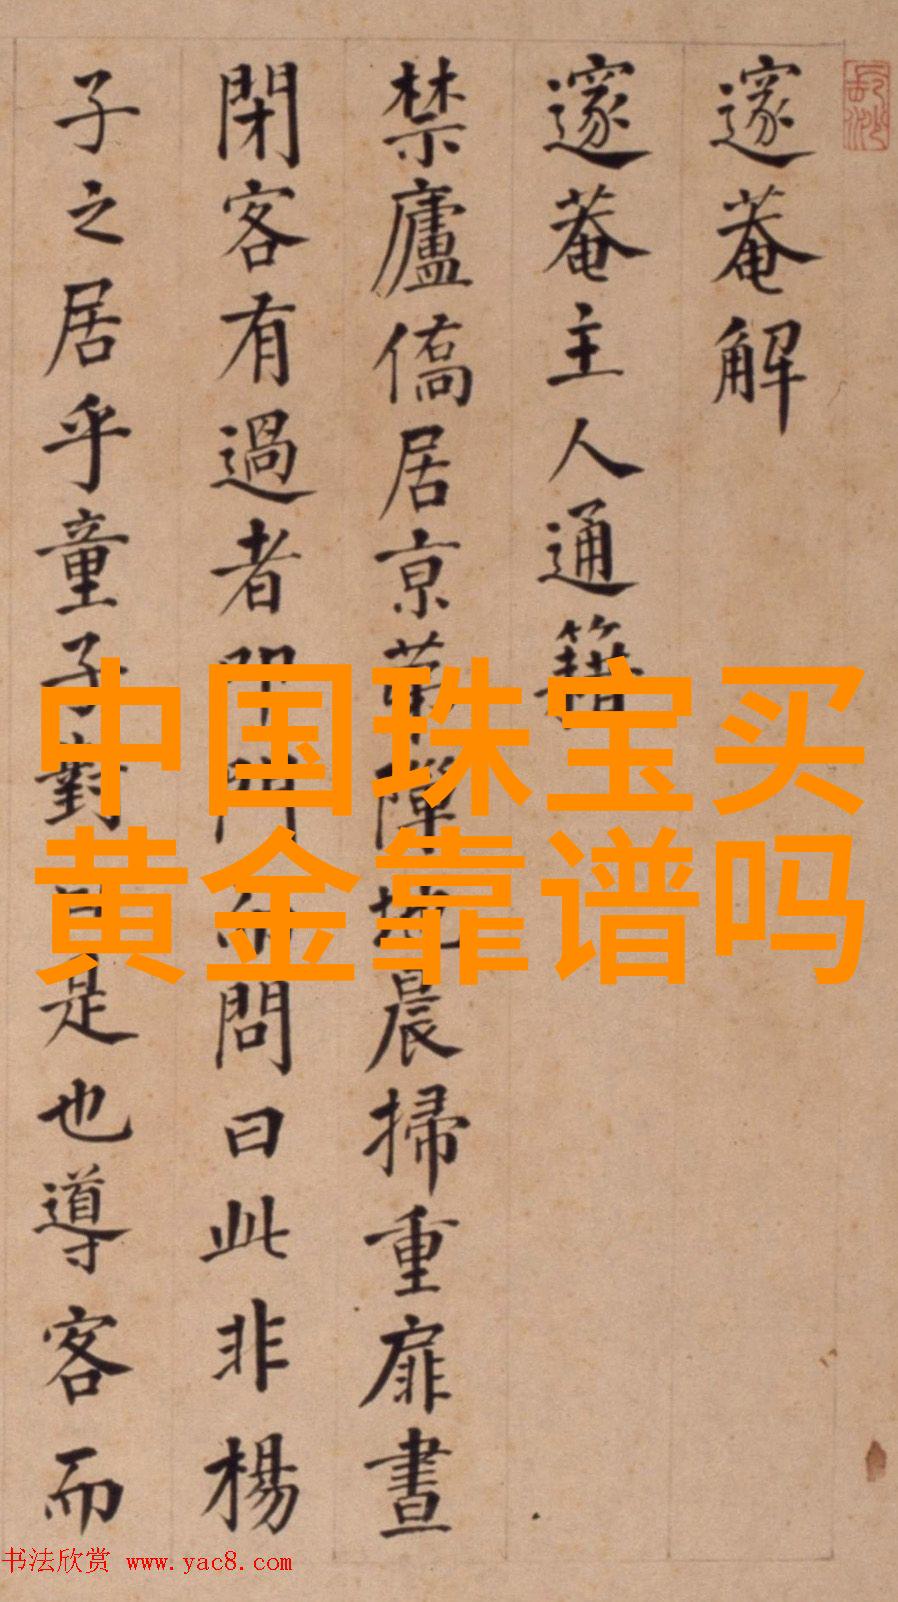 邃菴解
邃菴主人通籍
禁廬僑居京 障地晨掃重扉晝
閉客有過者叩門而問曰此非楊
子之居乎童子對曰是也導客而
中国珠宝买
黄金靠谱吗
书法欣赏 www.yac8.com